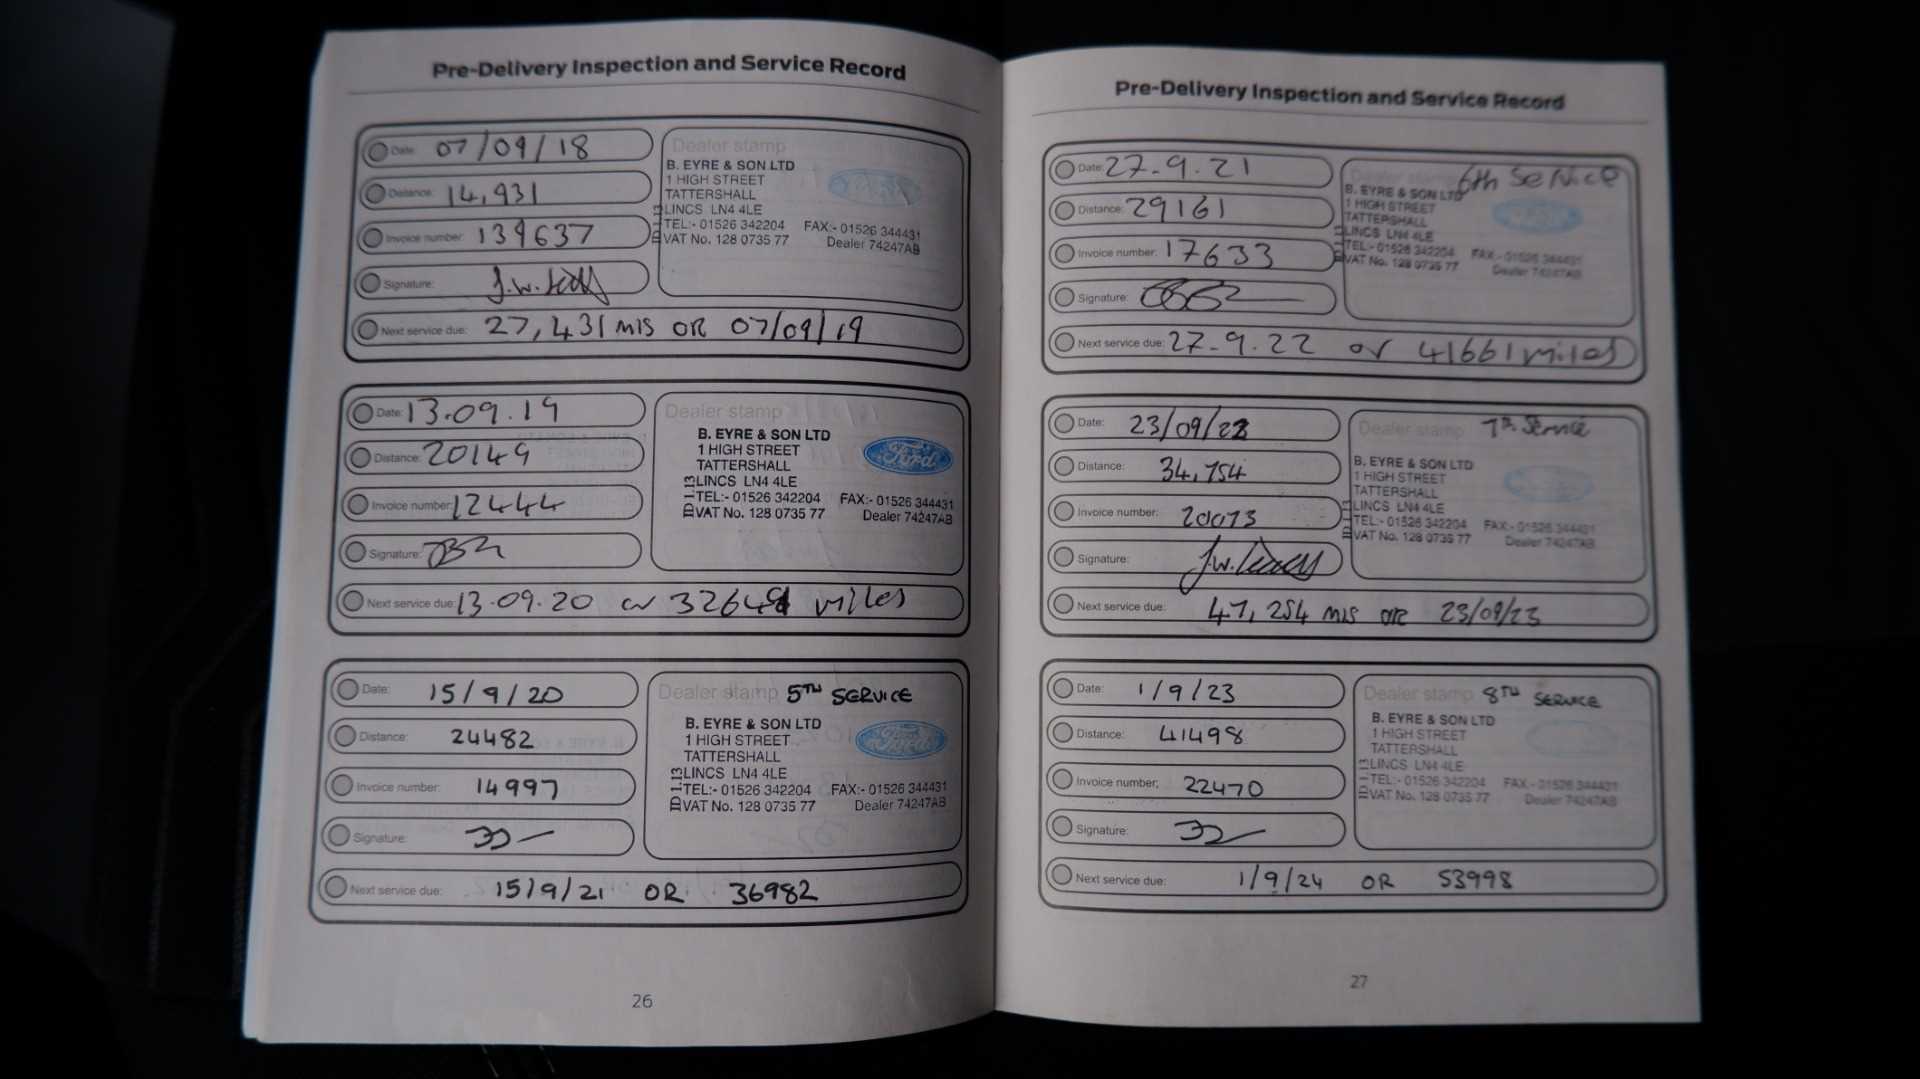 Pre-Delivery Inspection and Service Record
Date: 07/09/18
Distance: 14,931
Invoice number: 139637
Signature:
Next service due: 27,431 mls OR 07/09/19
Dealer stamp
B. EYRE & SON LTD
1 HIGH STREET
TATTERSHALL
LINCS LN4 4LE
TEL:- 01526 342204 FAX:- 01526 344431
VAT No. 128 0735 77 Dealer 74247AB
Date: 13.09.19
Distance: 20149
Invoice number: 12444
Signature:
Next service due: 13.09.20 or 32649 miles
Dealer stamp
B. EYRE & SON LTD
1 HIGH STREET
TATTERSHALL
LINCS LN4 4LE
TEL:- 01526 342204 FAX:- 01526 344431
VAT No. 128 0735 77 Dealer 74247AB
Ford
Date: 15/9/20
Distance: 24482
Invoice number: 14997
Signature:
Next service due: 15/9/21 OR 36982
Dealer stamp 5TH SERVICE
B. EYRE & SON LTD
1 HIGH STREET
TATTERSHALL
LINCS LN4 4LE
TEL:- 01526 342204 FAX:- 01526 344431
VAT No. 128 0735 77 Dealer 74247AB
Ford
26
Pre-Delivery Inspection and Service Record
Date: 27.9.21
Distance: 29161
Invoice number: 17633
Signature:
Next service due: 27.9.22 or 41661 miles
Dealer stamp 6th Service
B. EYRE & SON LTD
1 HIGH STREET
TATTERSHALL
LINCS LN4 4LE
TEL:- 01526 342204 FAX:- 01526 344431
VAT No. 128 0735 77 Dealer 74247AB
Date: 23/09/22
Distance: 34,754
Invoice number: 20073
Signature:
Next service due: 47,254 mls OR 23/09/23
Dealer stamp 7th Service
B. EYRE & SON LTD
1 HIGH STREET
TATTERSHALL
LINCS LN4 4LE
TEL:- 01526 342204 FAX:- 01526 344431
VAT No. 128 0735 77 Dealer 74247AB
Date: 1/9/23
Distance: 41498
Invoice number: 22470
Signature:
Next service due: 1/9/24 OR 53998
Dealer stamp 8TH SERVICE
B. EYRE & SON LTD
1 HIGH STREET
TATTERSHALL
LINCS LN4 4LE
TEL:- 01526 342204 FAX:- 01526 344431
VAT No. 128 0735 77 Dealer 74247AB
27